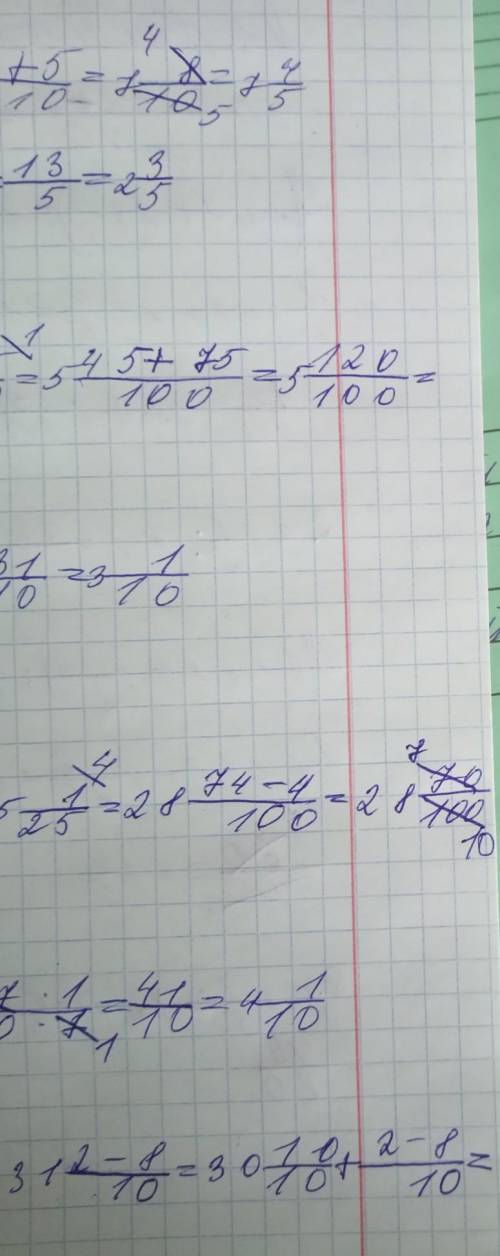 +5/10 = 7 8/10 = 7 4/5
13/5 = 2 3/5
1
= 5 45+75/100 = 5 120/100 =
31/10 = 3 1/10
5 1/25 = 28 74-4/100 = 28 70/100
7 · 1/7 = 41/10 = 4 1/10
31 2-8/10 = 30 10/10 + 2-8/10 =